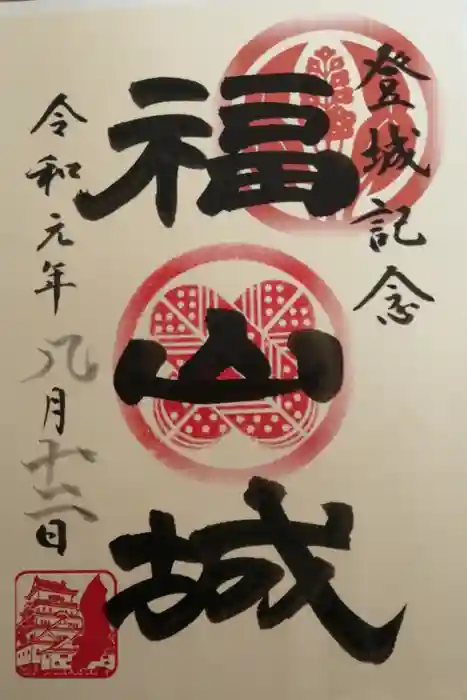 登城記念
福山城
令和元年
八月十六日